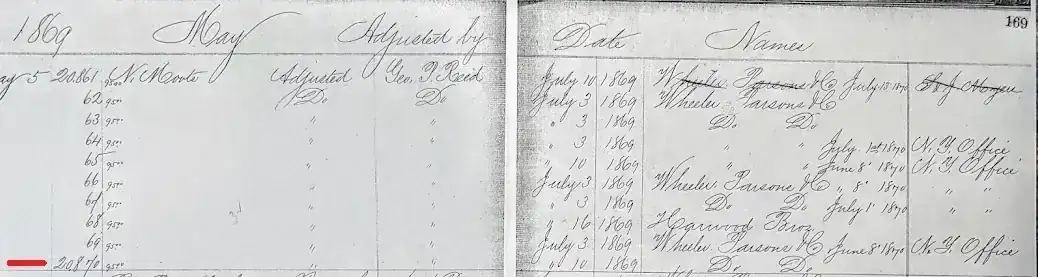 169
1869 May Adjusted by Date Names
ay 5 20.861 95⁰⁰ N. Moore Adjusted Geo. P. Reed July 10 1869 Wheeler Parsons &C July 13 1870
62 95⁰⁰ Do Do July 3 1869 Wheeler Parsons &C
63 95⁰⁰ " " " 3 1869 Do Do
64 95⁰⁰ " " " 3 1869 " " July 1st 1870 N.Y. Office
65 95⁰⁰ " " " 10 1869 " " June 8" 1870 N.Y. Office
66 95⁰⁰ " " July 3 1869 Wheeler, Parsons &C " 8" 1870 " "
67 95⁰⁰ " " " 3 1869 Do Do July 1" 1870 " "
68 95⁰⁰ 3d " " " 16 1869 Harwood Bros
69 95⁰⁰ " " July 3 1869 Wheeler, Parsons &C June 8" 1870 N.Y. Office
20.870 95⁰⁰ " " " 10 1869 Do Do